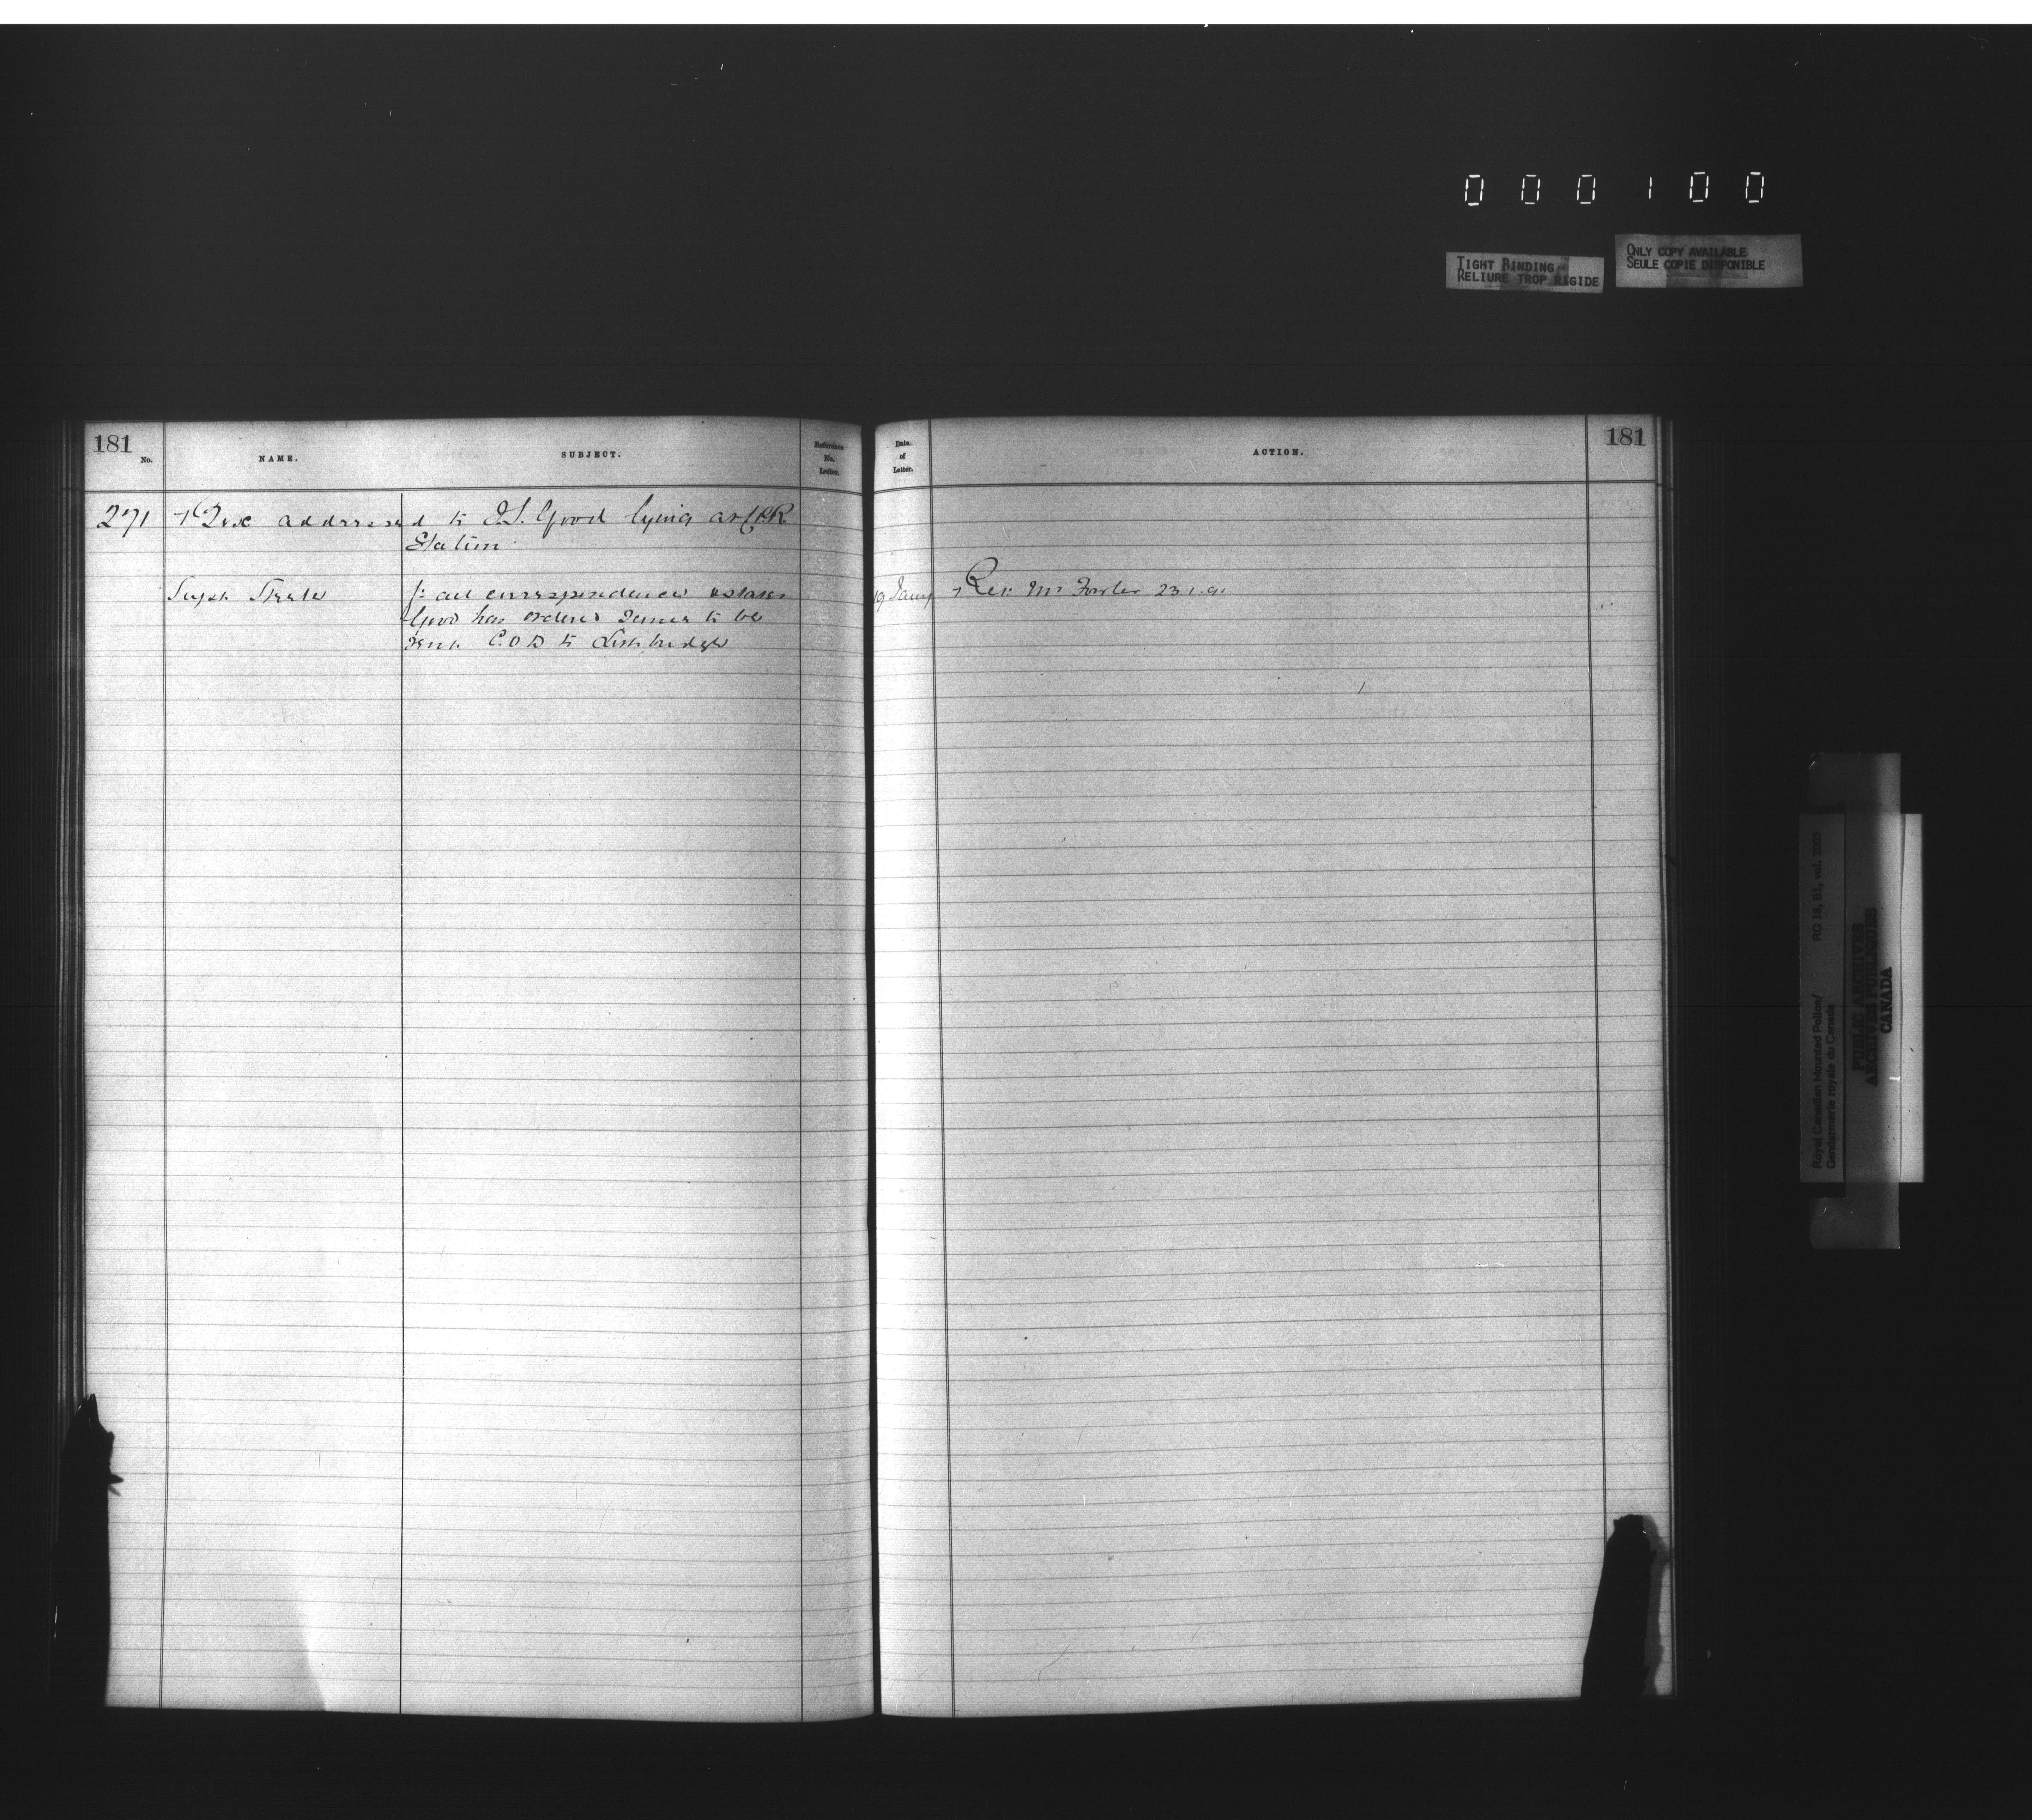 000100
TIGHT BINDING
RELIURE TROP RIGIDE
ONLY COPY AVAILABLE
SEULE COPIE DISPONIBLE
181
No.
NAME.
SUBJECT.
Reference
No.
Letter.
Date
of
Letter.
ACTION.
181
271 Box addressed to J.S. Good lying at CPR
Station
Supt Steele
f: all correspondence & states
Good has ordered same to be
sent C.O.D to Lethbridge
19 Jany
Rev: Mr Fowler 23.1.91
Royal Canadian Mounted Police/
Gendarmerie royale du Canada
RG 18, B1, vol. 2005
PUBLIC ARCHIVES
ARCHIVES PUBLIQUES
CANADA